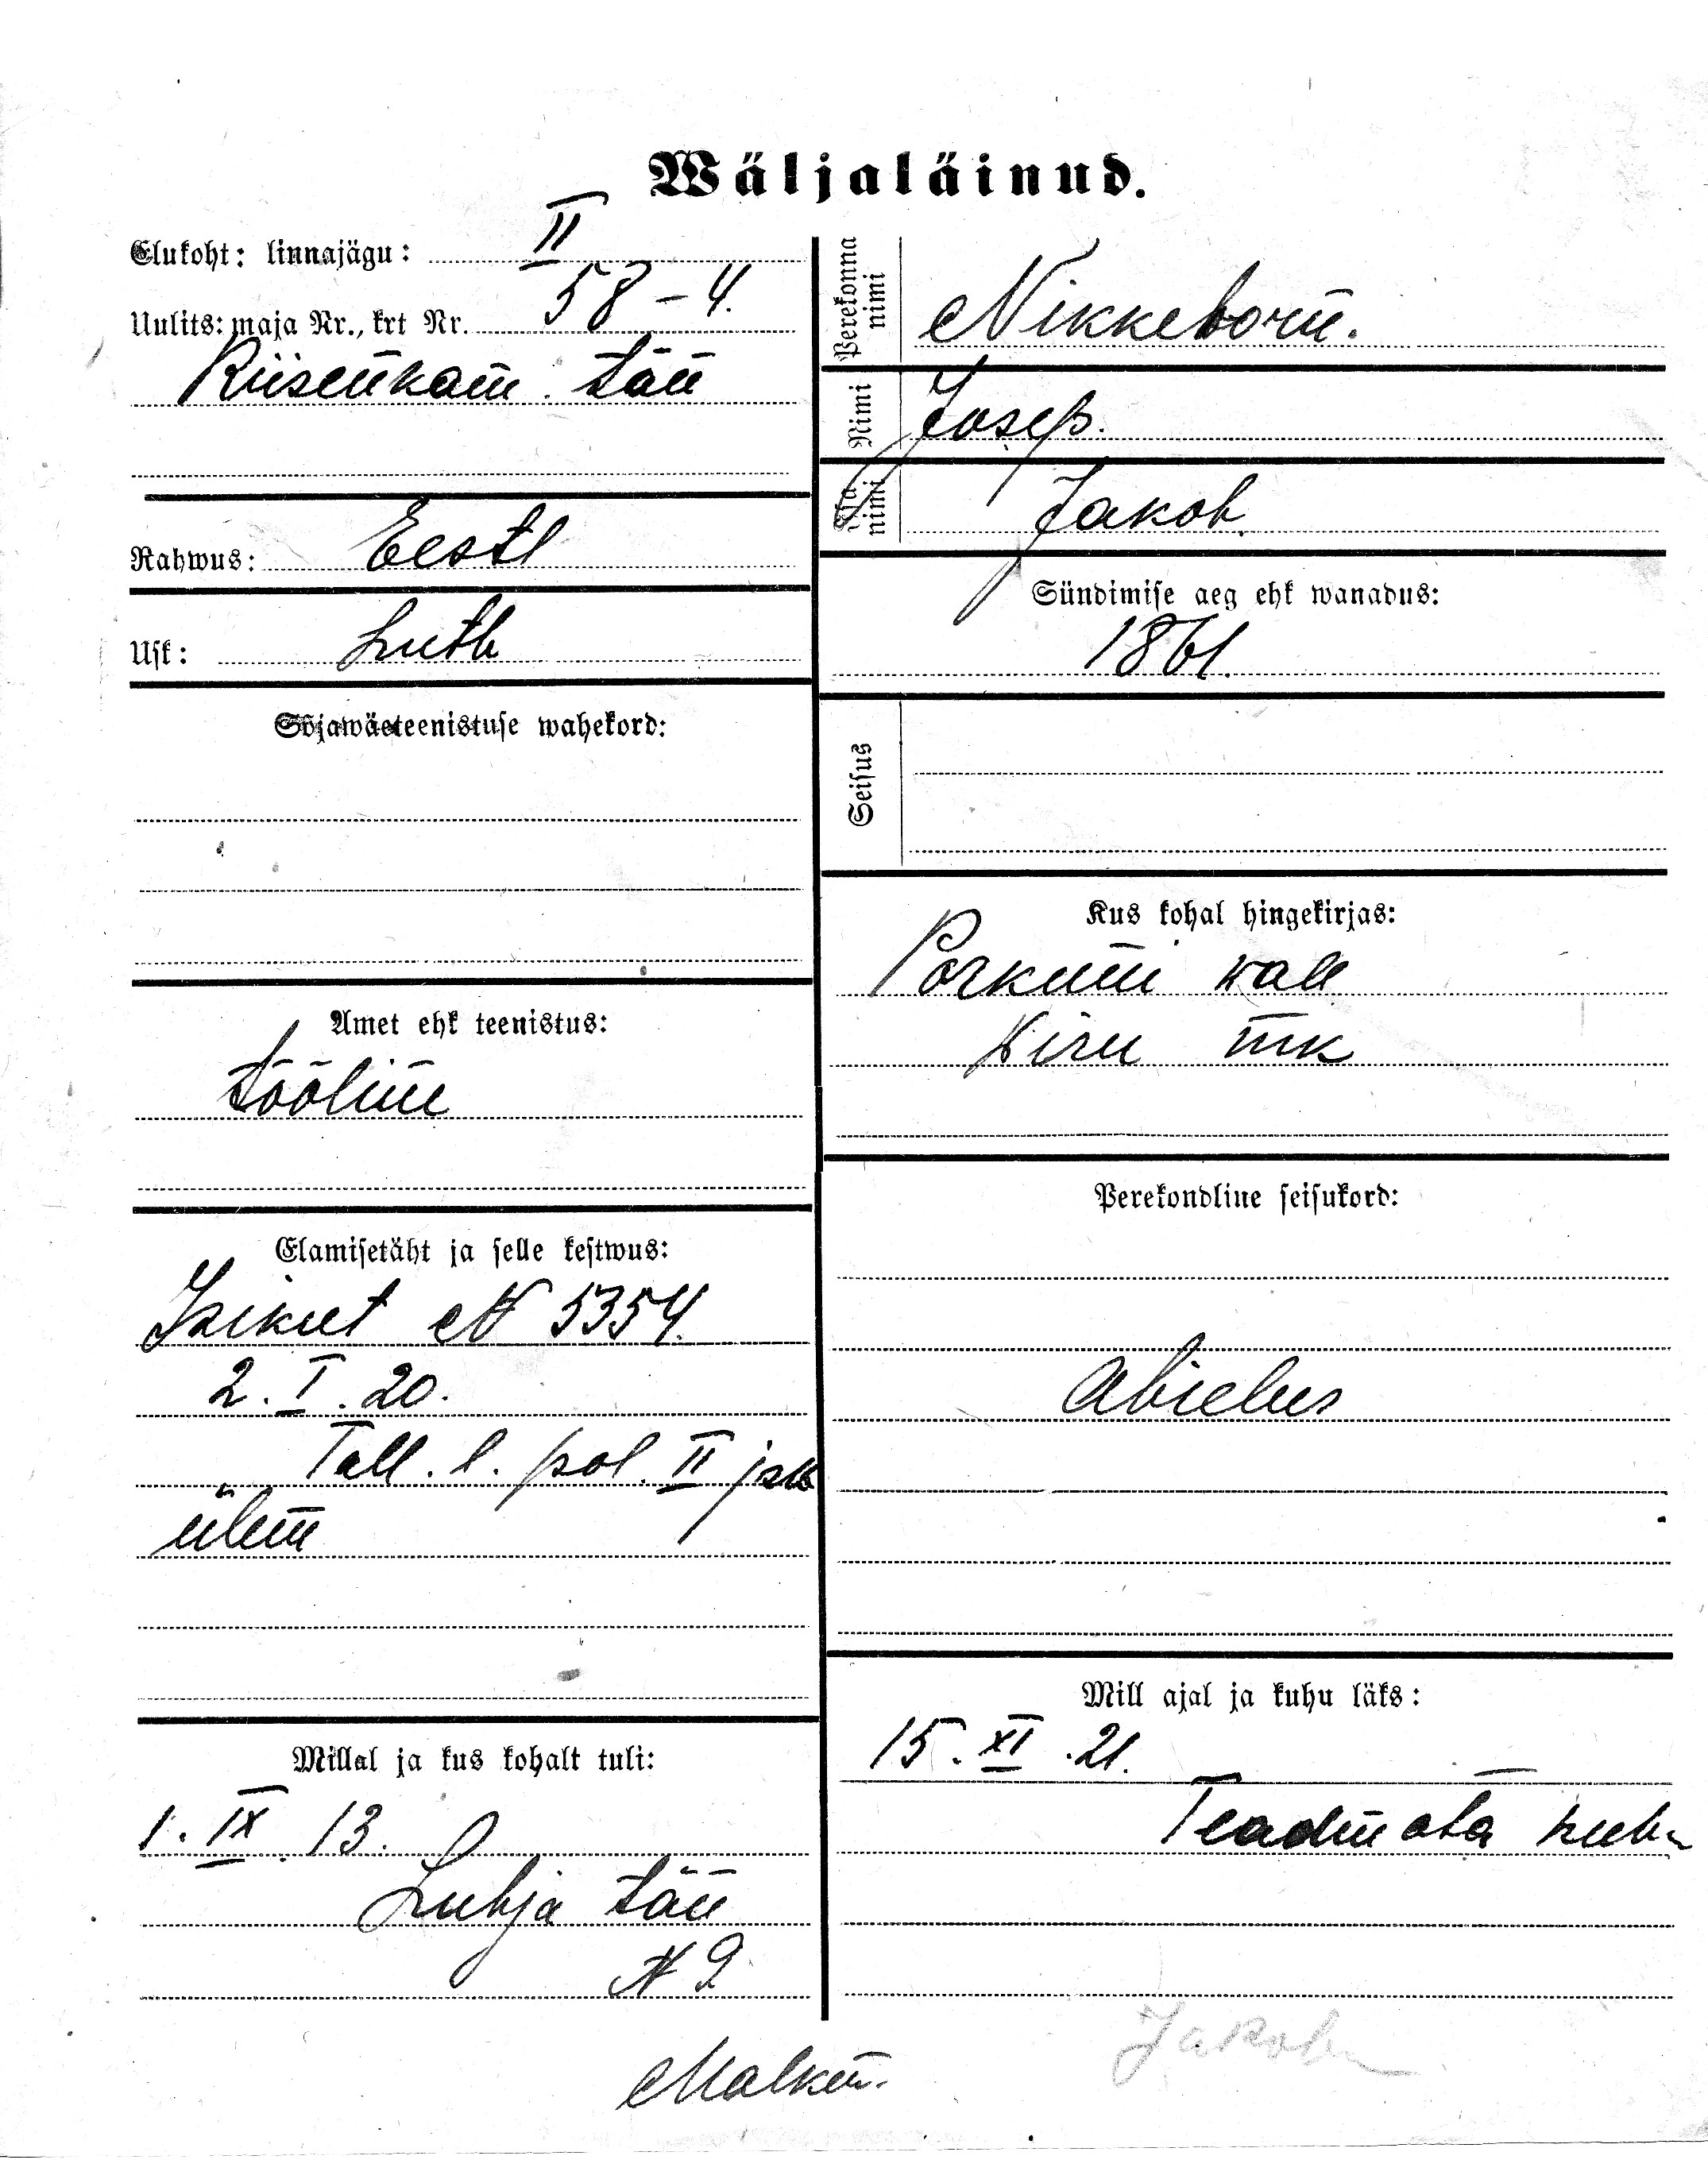 Wäljaläinud.
Elukoht: linnajägu: II
Uulits: maja Nr., krt Nr. 58 – 4.
Riisenkam̅. tän̅
Rahwus: Eestl
Usk: Luth
Sõjawäeteenistuse wahekord:
Amet ehk teenistus:
töölin̅e
Elamisetäht ja selle kestwus:
Isikut № 5354.
2. I. 20.
Tall. l. pol. II jsk
ülem̅
Millal ja kus kohalt tuli:
1. IX. 13.
Lubja tän̅
№ 9.
Perekonna nimi
Nikkeborn̅.
Nimi
Josep.
Isa nimi
Jakob.
Sündimise aeg ehk wanadus:
1861.
Seisus
Kus kohal hingekirjas:
Porkuni wall
Wiru m̅k
Perekondline seisukord:
Abielus
Mill ajal ja kuhu läks:
15. XI. 21.
Teadm̅ata kuhu
Jakob